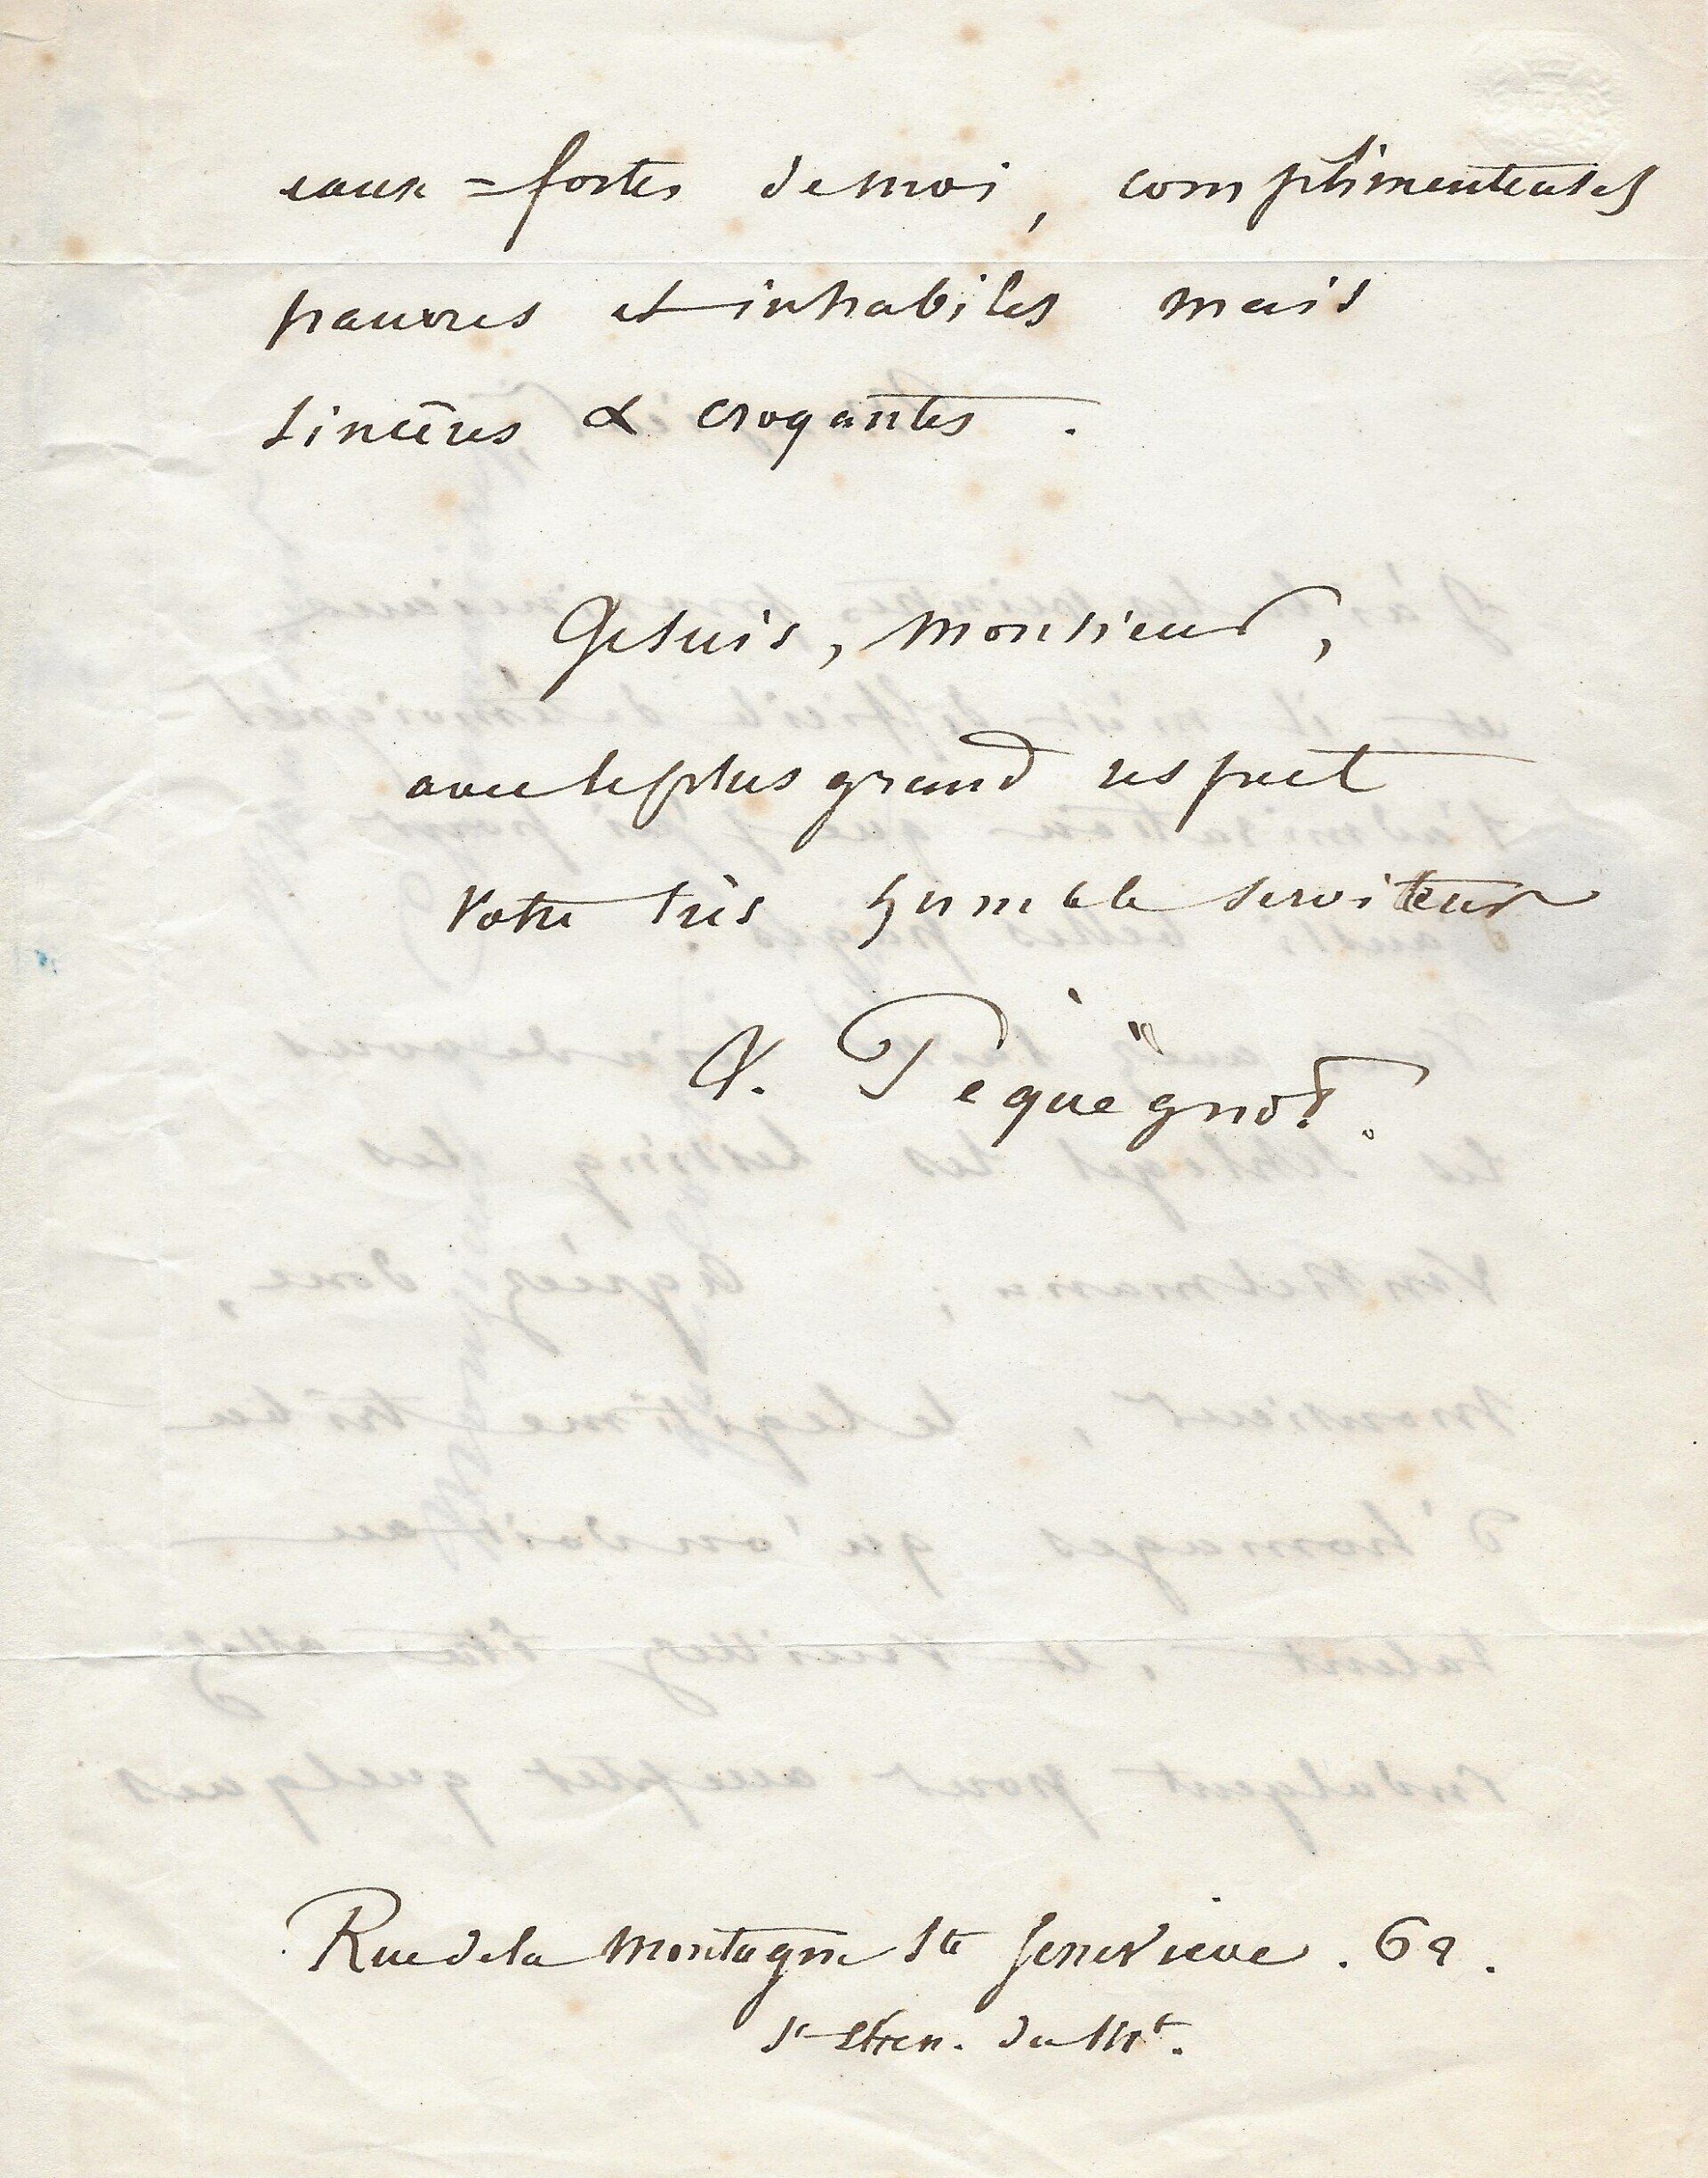 eaux=fortes de moi, complimenteuses
pauvres et inhabiles mais
sincères & croyantes.
Je suis, Monsieur,
avec le plus grand respect
Votre très humble serviteur
A. Péquégnot.
Rue de la Montagne Ste Geneviève. 69.
St Etien. du Mt.